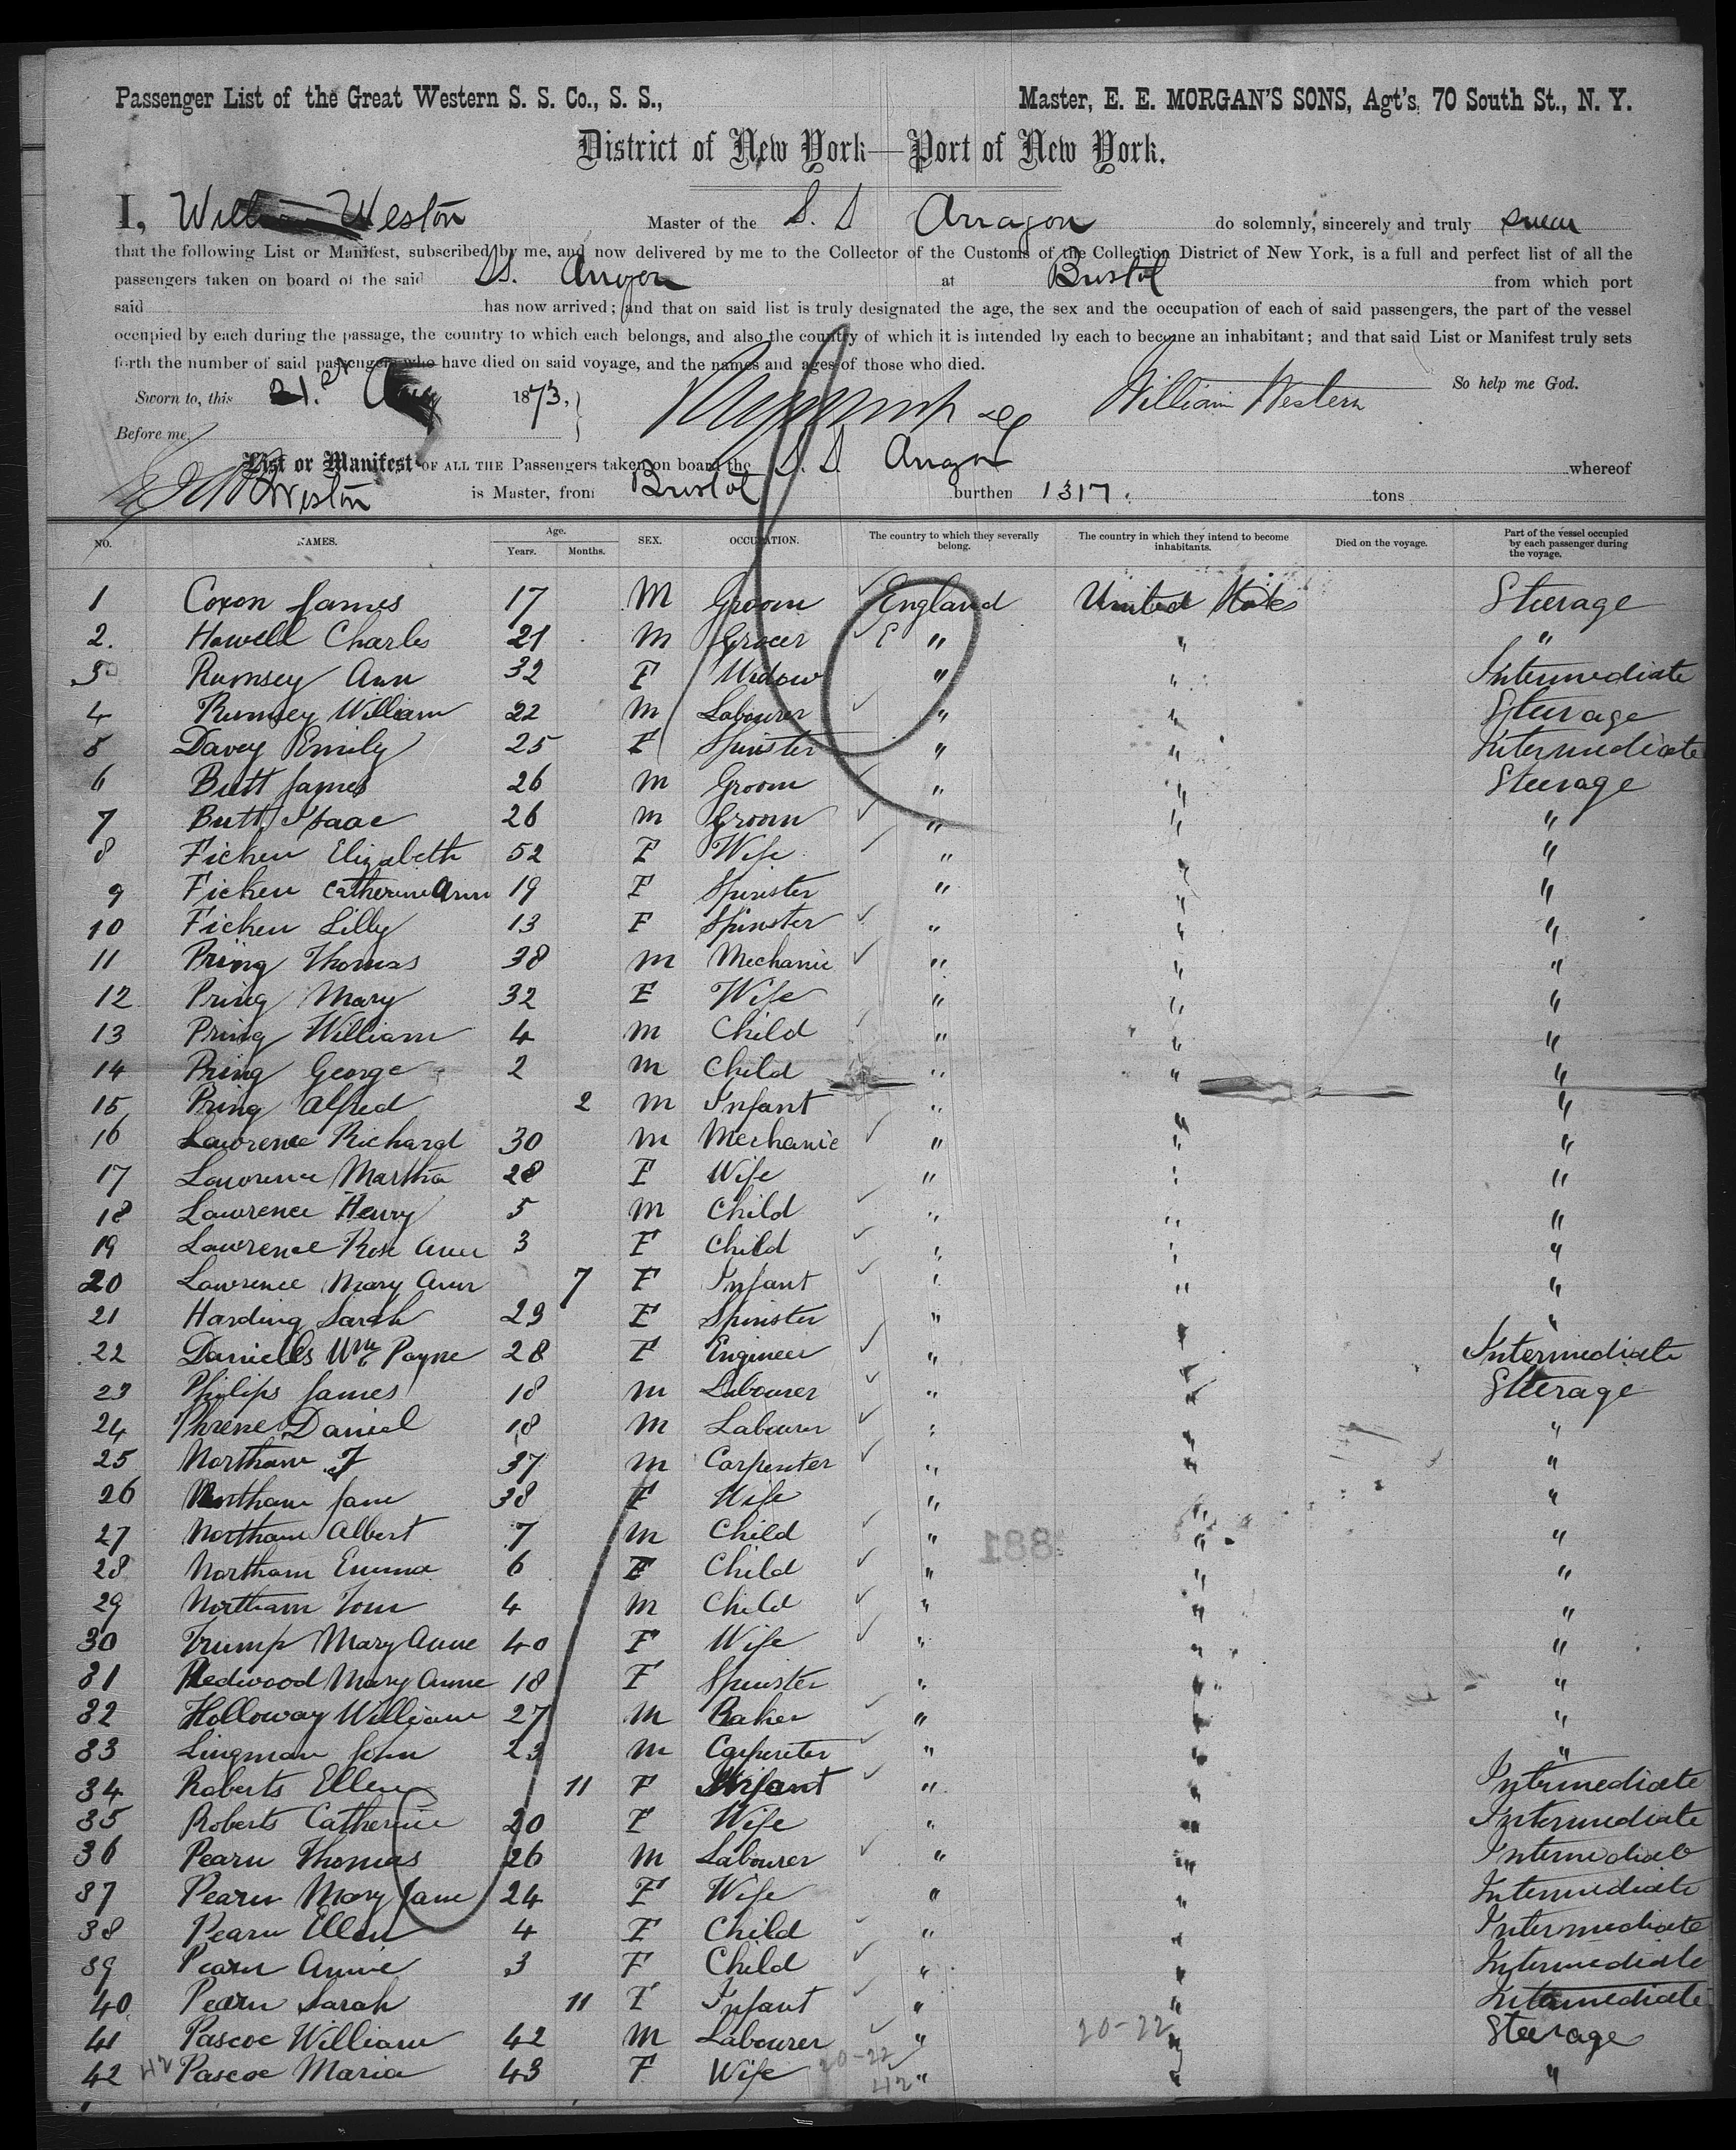 Passenger List of the Great Western S. S. Co., S. S., Master, E. E. MORGAN'S SONS, Agt's, 70 South St., N. Y.
District of New York—Port of New York.
I, William Weston Master of the S. S Arragon do solemnly, sincerely and truly swear
that the following List or Manifest, subscribed by me, and now delivered by me to the Collector of the Customs of the Collection District of New York, is a full and perfect list of all the
passengers taken on board of the said SS. Arragon at Bristol from which port
said has now arrived; and that on said list is truly designated the age, the sex and the occupation of each of said passengers, the part of the vessel
occupied by each during the passage, the country to which each belongs, and also the country of which it is intended by each to become an inhabitant; and that said List or Manifest truly sets
forth the number of said passengers who have died on said voyage, and the names and ages of those who died.
So help me God.
Sworn to, this 21.st Aug 1873, William Western
Before me,
List or Manifest OF ALL THE Passengers taken on board the S. S. Arragon whereof
Weston is Master, from Bristol burthen 1317. tons
NO. NAMES. Age. Years. Months. SEX. OCCUPATION. The country to which they severally belong. The country in which they intend to become inhabitants. Died on the voyage. Part of the vessel occupied by each passenger during the voyage.
1 Coxon James 17 M Groom England United States Steerage
2. Howell Charles 21 M Grocer E " " "
3 Rumsey Ann 32 F Widow " " Intermediate
4 Rumsey William 22 M Labourer " " Steerage
5 Davey Emily 25 F Spinster " " Intermediate
6 Butt James 26 M Groom " " Steerage
7 Butt Isaac 26 M Groom " " "
8 Ficken Elizabeth 52 F Wife " " "
9 Ficken Catherine Ann 19 F Spinster " " "
10 Ficken Lilly 13 F Spinster " " "
11 Pring Thomas 38 M Mechanic " " "
12 Pring Mary 32 F Wife " " "
13 Pring William 4 M Child " " "
14 Pring George 2 M Child " " "
15 Pring Alfred 2 M Infant " " "
16 Lawrence Richard 30 M Mechanic " " "
17 Lawrence Martha 28 F Wife " " "
18 Lawrence Henry 5 M Child " " "
19 Lawrence Rose Ann 3 F Child " " "
20 Lawrence Mary Ann 7 F Infant " " "
21 Harding Sarah 29 F Spinster " " "
22 Daniells Wm Payne 28 F Engineer " " Intermediate
23 Philips James 18 M Labourer " " Steerage
24 Phrene Daniel 18 M Labourer " " "
25 Northam J 37 M Carpenter " " "
26 Northam Jane 38 F Wife " " "
27 Northam Albert 7 M Child " " "
28 Northam Emma 6 F Child " " "
29 Northam Tom 4 M Child " " "
30 Trump Mary Anne 40 F Wife " " "
31 Redwood Mary Anne 18 F Spinster " " "
32 Holloway William 27 M Baker " " "
33 Lingman John 23 M Carpenter " " "
34 Roberts Ellen 11 F Infant " " Intermediate
35 Roberts Catherine 20 F Wife " " Intermediate
36 Pearn Thomas 26 M Labourer " " Intermediate
37 Pearn Mary Jane 24 F Wife " " Intermediate
38 Pearn Ellen 4 F Child " " Intermediate
39 Pearn Annie 3 F Child " " Intermediate
40 Pearn Sarah 11 F Infant " " Intermediate
41 Pascoe William 42 M Labourer " 20-22 " Steerage
42 42 Pascoe Maria 43 F Wife 20-22 42 " " "